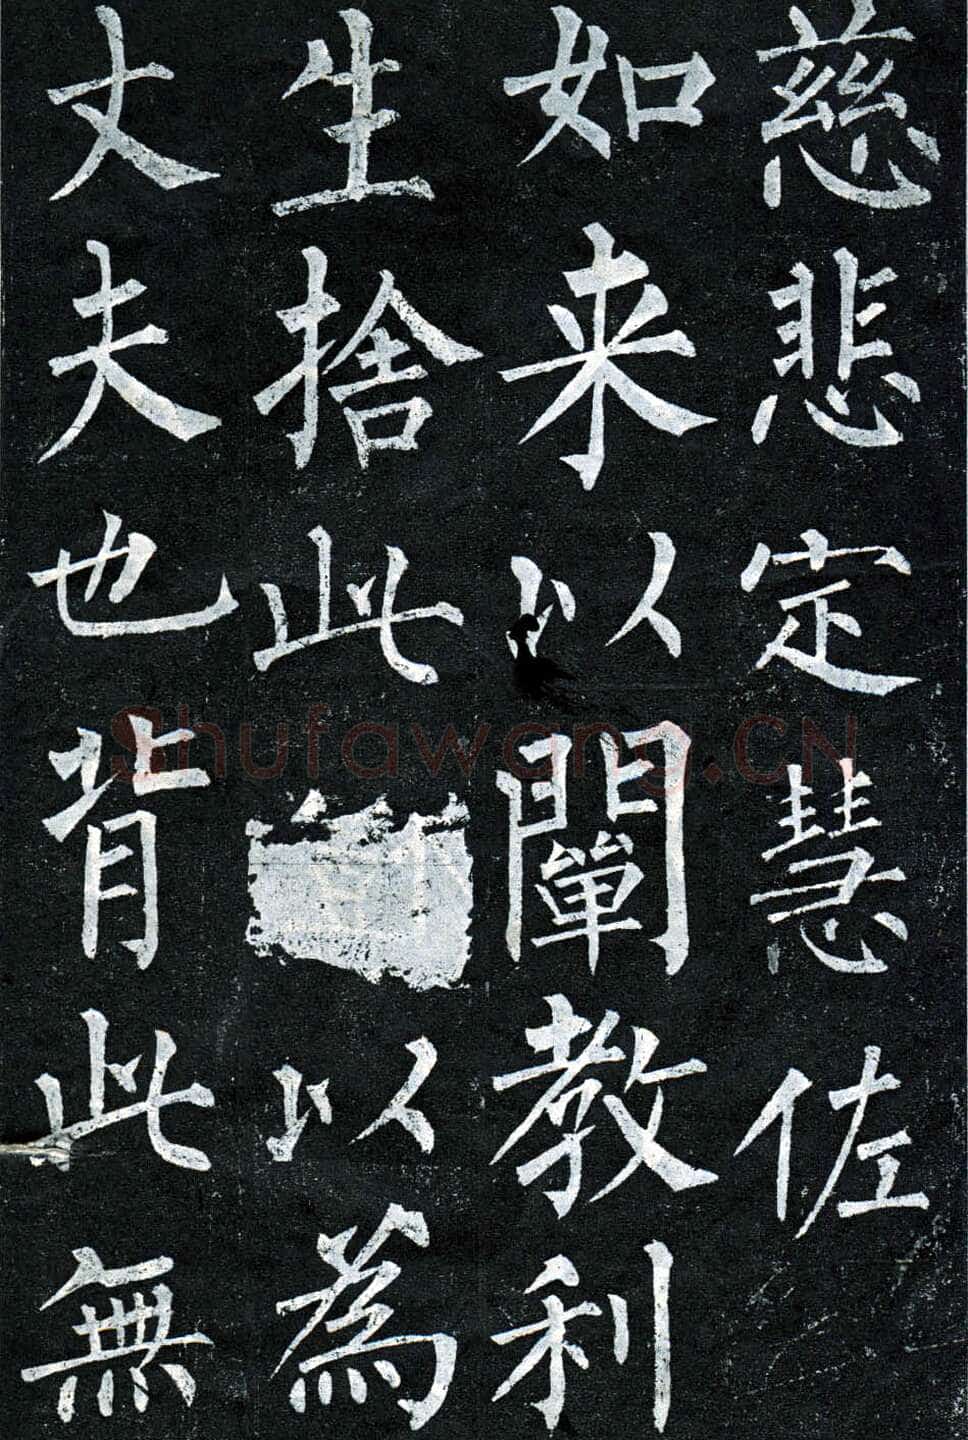 慈悲定慧佐
如来以闡教利
生捨此以為
丈夫也背此無
Shufawang.CN